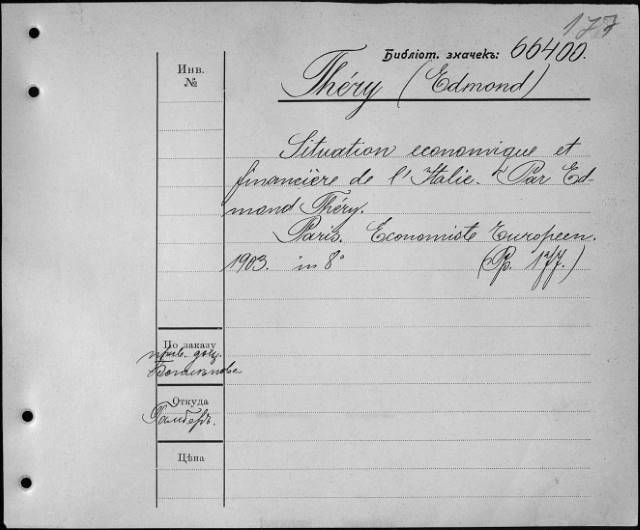 177
Библіот. значекъ: 66400.
Инв.
№
Théry (Edmond)
Situation economique et
financière de l'Italie. Par Ed-
mond Théry.
Paris. Economiste Europeen.
1903. in 8° (Pp. 177.)
По заказу
прив.-доц.
Откуда
Цѣна